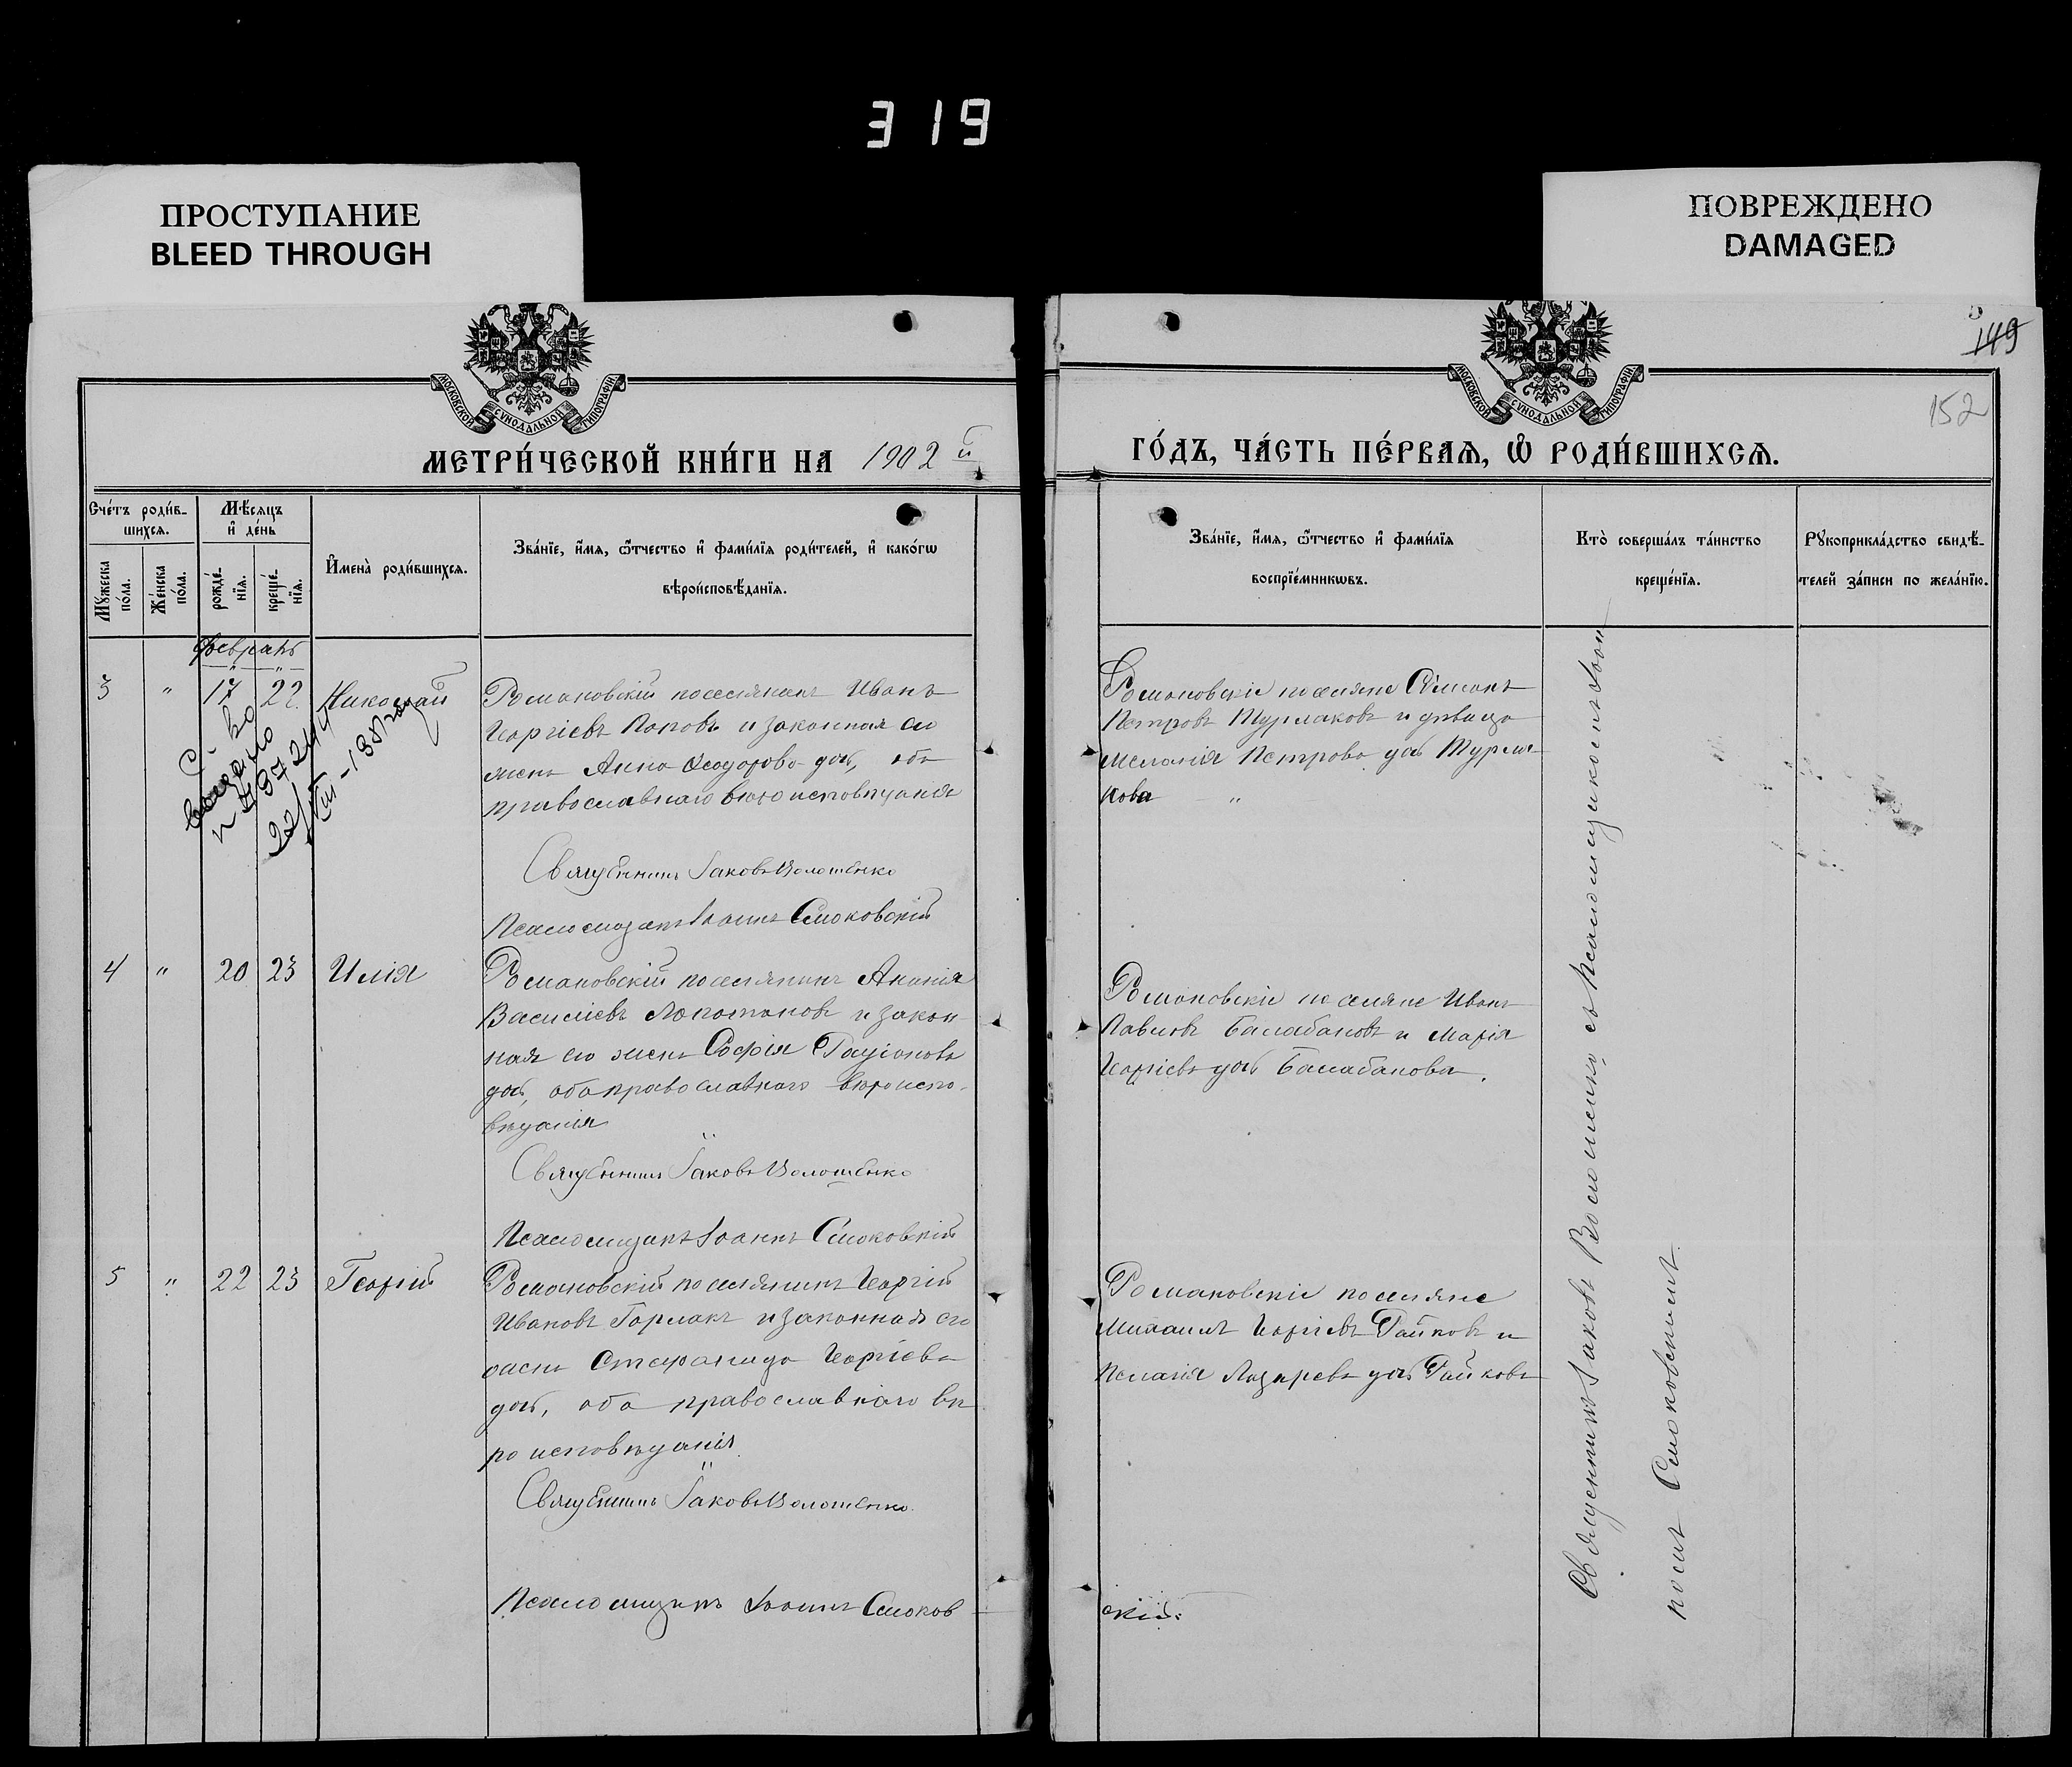 319
ПРОСТУПАНИЕ
BLEED THROUGH
ПОВРЕЖДЕНО
DAMAGED
МОСКОВСКОЙ СУНОДАЛЬНОЙ ТИПОГРАФІИ
МОСКОВСКОЙ СУНОДАЛЬНОЙ ТИПОГРАФІИ
149
152
МЕТРИ́ЧЕСКОЙ КНИ́ГИ НА 1902й
ГО́ДЪ, ЧА́СТЬ ПЕ́РВАѦ, Ѡ҆ РОДИ́ВШИХСѦ.
Сче́тъ роди́в-
шихсѧ.
Мꙋжеска по́ла.
Же́нска по́ла.
Мѣ́сѧцъ
и҆ де́нь
рожде́-
нїѧ.
креще́-
нїѧ.
И҆мена̀ роди́вшихсѧ.
Зва́нїе, и҆́мѧ, ѻ҆́тчество и҆ фами́лїѧ роди́телей, и҆ како́гѡ
вѣроисповѣ́данїѧ.
Зва́нїе, и҆́мѧ, ѻ҆́тчество и҆ фами́лїѧ
воспрїе́мникѡвъ.
Кто̀ соверша́лъ та́инство
креще́нїѧ.
Рꙋкоприкла́дство свидѣ́-
телей за́писи по жела́нїю.
Февраль
3 " 17 22 Николай
Романовскій поселянинъ Иванъ
Георгіевъ Поповъ и законная его
жена Анна Ѳеодорова доч, оба
православнаго вѣроисповѣданія
Священникъ Іаковъ Волошенко
Псаломщикъ Іоаннъ Смоковскій
Романовскіе поселяне Симеонъ
Петровъ Турлаковъ и дѣвица
Меланія Петрова доч Турла-
кова "
4 " 20 23 Илія
Романовскій поселянинъ Ананія
Василіевъ и закон
ная его жена Софія Радіонова
доч, оба православнаго вѣроиспо-
вѣданія
Священникъ Іаковъ Волошенко
Псаломщикъ Іоаннъ Смоковскій
Романовскіе поселяне Иванъ
Павловъ Балабановъ и Марія
Георгіева доч Балабанова.
5 " 22 23 Георгій
Романовскій поселянинъ Георгій
Ивановъ и законная его
жена Стефанида Георгіева
доч, оба православнаго вѣ
роисповѣданія
Священникъ Іаковъ Волошенко
Псаломщикъ Іоаннъ Смоков
скій.
Романовскіе поселяне
Михаилъ Георгіевъ Гайковъ и
Пелагія Лазарева доч Гайкова
Священникъ Іаковъ Волошенко съ псаломщикомъ Іоан
номъ Смоковскимъ